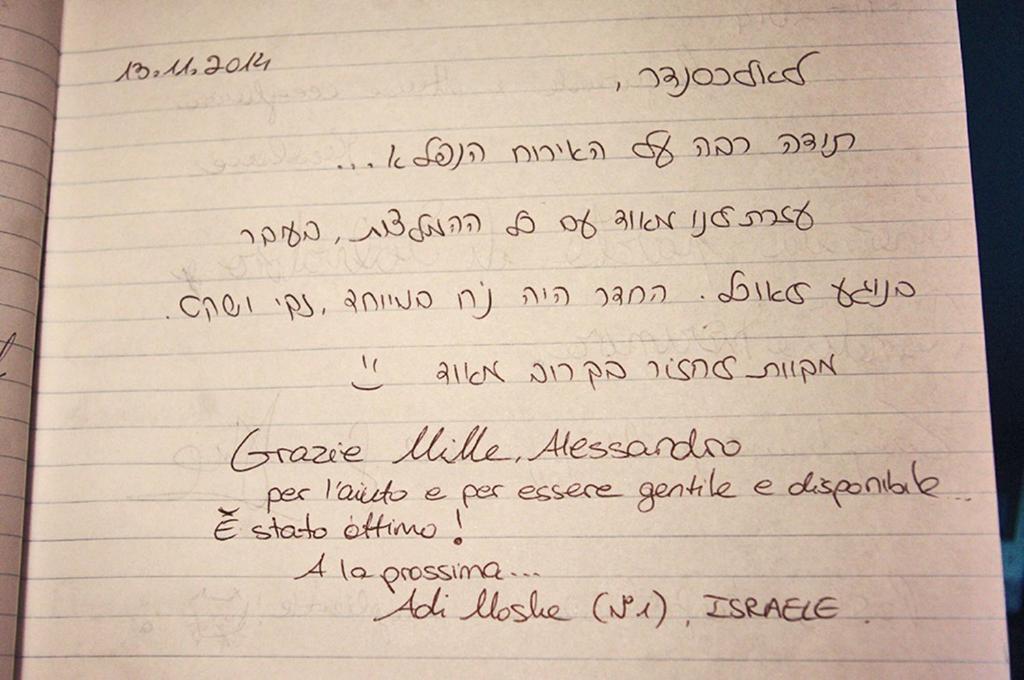 13.11.2014
לאלכסנדר,
תודה רבה על האירוח הנפלא...
עזרת לנו מאוד עם כל ההמלצות, בעיקר
בנוגע לאוכל. החדר היה נוח במיוחד, נקי ושקט.
מקוות לחזור בקרוב מאוד
Grazie Mille, Alessandro
per l'aiuto e per essere gentile e disponibile...
È stato òttimo!
A la prossima...
Adi Moshe (N°1), ISRAELE.